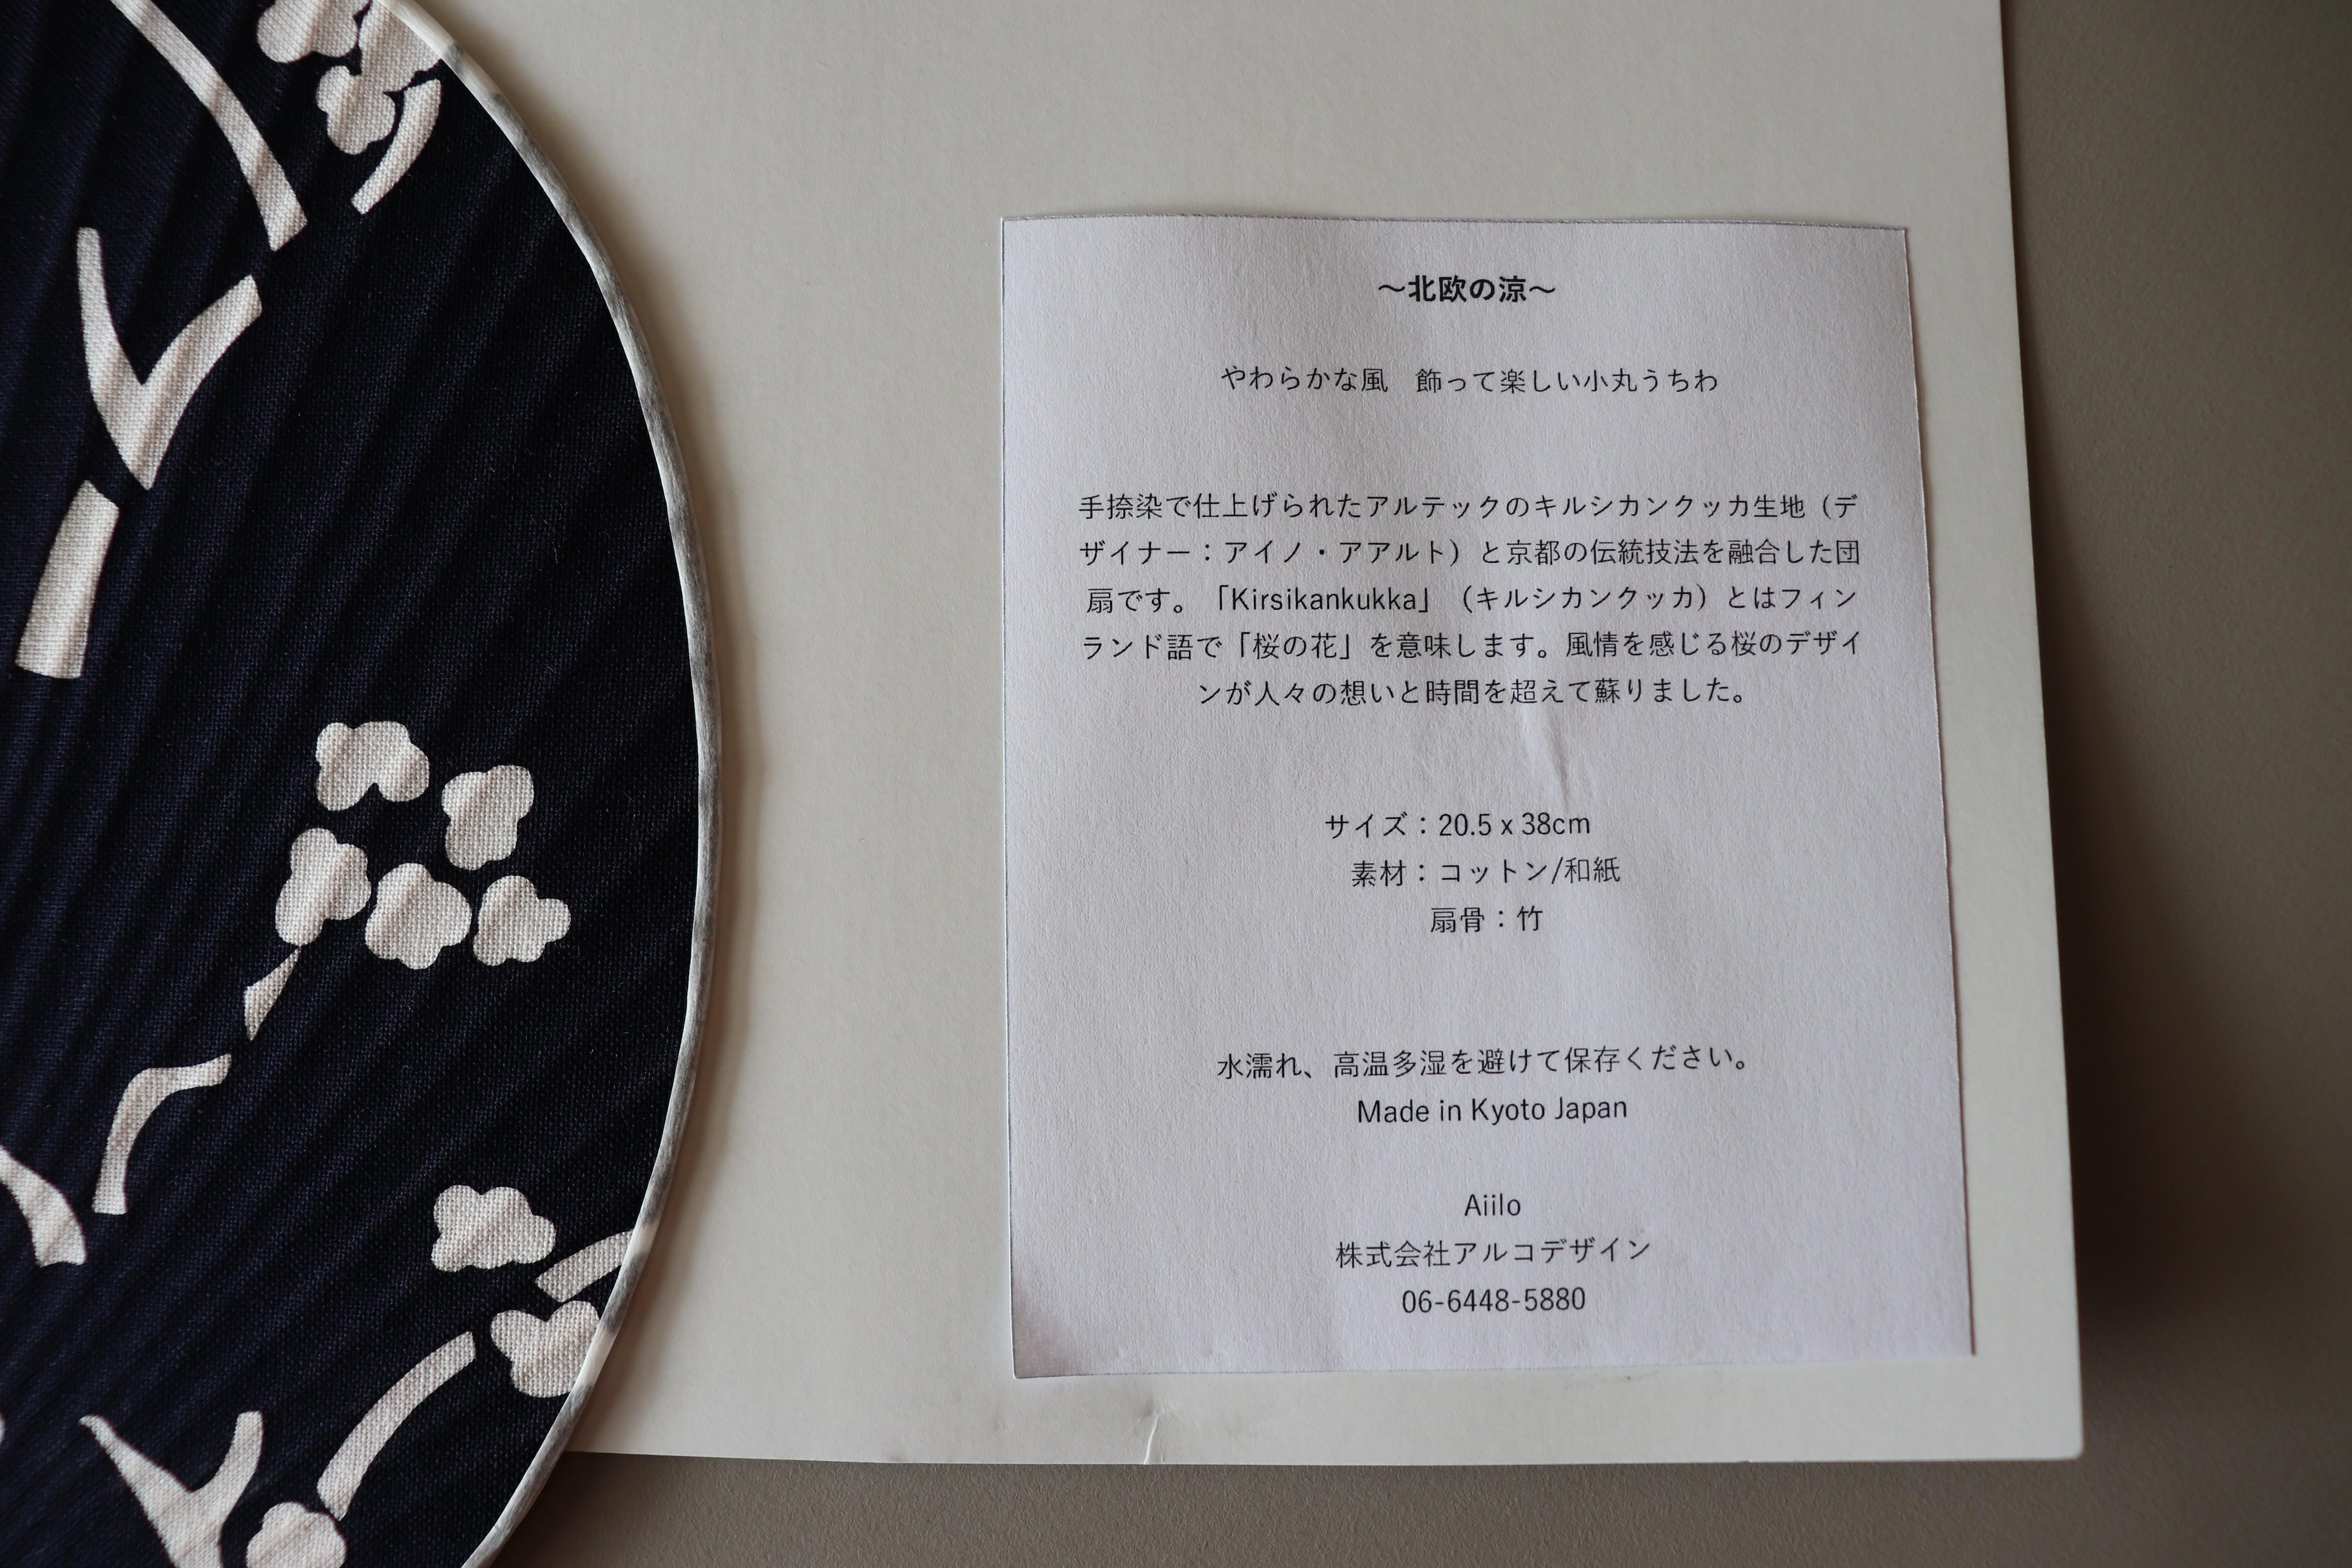 ～北欧の涼～
やわらかな風　飾って楽しい小丸うちわ
手捺染で仕上げられたアルテックのキルシカンクッカ生地（デ
ザイナー：アイノ・アアルト）と京都の伝統技法を融合した団
扇です。「Kirsikankukka」（キルシカンクッカ）とはフィン
ランド語で「桜の花」を意味します。風情を感じる桜のデザイ
ンが人々の想いと時間を超えて蘇りました。
サイズ：20.5 x 38cm
素材：コットン/和紙
扇骨：竹
水濡れ、高温多湿を避けて保存ください。
Made in Kyoto Japan
Aiilo
株式会社アルコデザイン
06-6448-5880